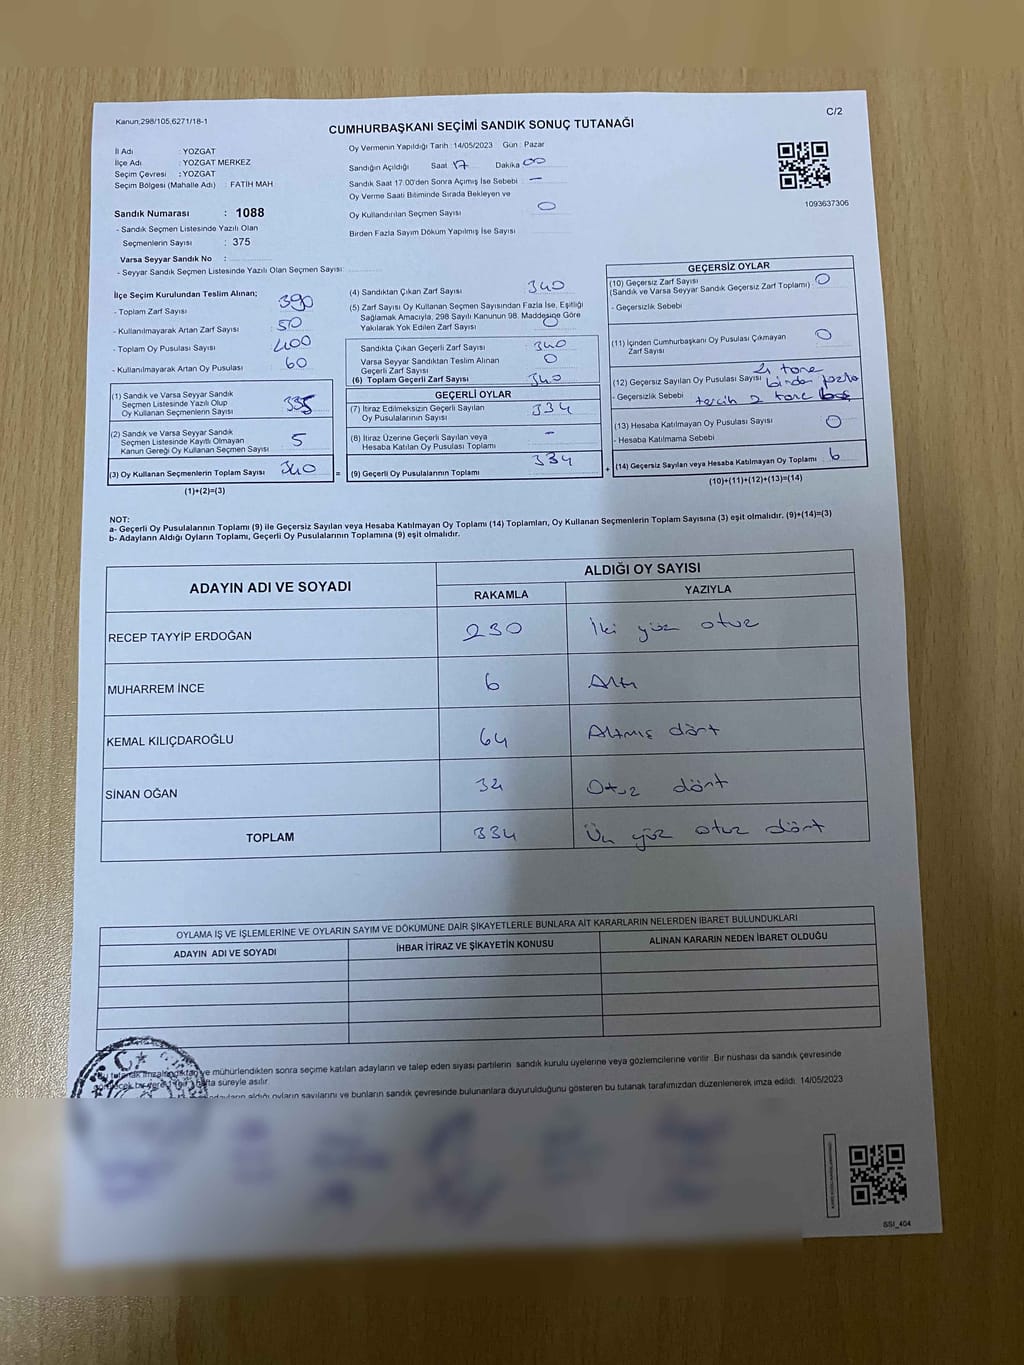 Kanun;298/105,6271/18-1
C/2
CUMHURBAŞKANI SEÇİMİ SANDIK SONUÇ TUTANAĞI
İl Adı : YOZGAT
İlçe Adı : YOZGAT MERKEZ
Seçim Çevresi : YOZGAT
Seçim Bölgesi (Mahalle Adı) : FATİH MAH
Sandık Numarası : 1088
- Sandık Seçmen Listesinde Yazılı Olan
Seçmenlerin Sayısı : 375
Varsa Seyyar Sandık No :
- Seyyar Sandık Seçmen Listesinde Yazılı Olan Seçmen Sayısı:
Oy Vermenin Yapıldığı Tarih : 14/05/2023 Gün : Pazar
Sandığın Açıldığı Saat 17 Dakika 00
Sandık Saat 17:00'den Sonra Açımış İse Sebebi : —
Oy Verme Saati Bitiminde Sırada Bekleyen ve
Oy Kullandırılan Seçmen Sayısı 0
Birden Fazla Sayım Döküm Yapılmış İse Sayısı
1093637306
İlçe Seçim Kurulundan Teslim Alınan;
- Toplam Zarf Sayısı 390
- Kullanılmayarak Artan Zarf Sayısı 50
- Toplam Oy Pusulası Sayısı 400
- Kullanılmayarak Artan Oy Pusulası 60
(1) Sandık ve Varsa Seyyar Sandık
Seçmen Listesinde Yazılı Olup
Oy Kullanan Seçmenlerin Sayısı 335
(2) Sandık ve Varsa Seyyar Sandık
Seçmen Listesinde Kayıtlı Olmayan
Kanun Gereği Oy Kullanan Seçmen Sayısı 5
(3) Oy Kullanan Seçmenlerin Toplam Sayısı 340 =
(1)+(2)=(3)
(4) Sandıktan Çıkan Zarf Sayısı 340
(5) Zarf Sayısı Oy Kullanan Seçmen Sayısından Fazla İse, Eşitliği
Sağlamak Amacıyla, 298 Sayılı Kanunun 98. Maddesine Göre
Yakılarak Yok Edilen Zarf Sayısı 0
Sandıkta Çıkan Geçerli Zarf Sayısı 340
Varsa Seyyar Sandıktan Teslim Alınan
Geçerli Zarf Sayısı 0
(6) Toplam Geçerli Zarf Sayısı 340
GEÇERLİ OYLAR
(7) İtiraz Edilmeksizin Geçerli Sayılan
Oy Pusulalarının Sayısı 334
(8) İtiraz Üzerine Geçerli Sayılan veya
Hesaba Katılan Oy Pusulası Toplamı –
(9) Geçerli Oy Pusulalarının Toplamı 334 +
GEÇERSİZ OYLAR
(10) Geçersiz Zarf Sayısı 0
(Sandık ve Varsa Seyyar Sandık Geçersiz Zarf Toplamı)
- Geçersizlik Sebebi
(11) İçinden Cumhurbaşkanı Oy Pusulası Çıkmayan
Zarf Sayısı 0
(12) Geçersiz Sayılan Oy Pusulası Sayısı 4 tane birden fazla
- Geçersizlik Sebebi tercih 2 tane boş
(13) Hesaba Katılmayan Oy Pusulası Sayısı 0
- Hesaba Katılmama Sebebi
(14) Geçersiz Sayılan veya Hesaba Katılmayan Oy Toplamı : 6
(10)+(11)+(12)+(13)=(14)
NOT:
a- Geçerli Oy Pusulalarının Toplamı (9) ile Geçersiz Sayılan veya Hesaba Katılmayan Oy Toplamı (14) Toplamları, Oy Kullanan Seçmenlerin Toplam Sayısına (3) eşit olmalıdır. (9)+(14)=(3)
b- Adayların Aldığı Oyların Toplamı, Geçerli Oy Pusulalarının Toplamına (9) eşit olmalıdır.
ADAYIN ADI VE SOYADI
ALDIĞI OY SAYISI
RAKAMLA YAZIYLA
RECEP TAYYİP ERDOĞAN 230 İki yüz otuz
MUHARREM İNCE 6 Altı
KEMAL KILIÇDAROĞLU 64 Altmış dört
SİNAN OĞAN 34 Otuz dört
TOPLAM 334 Üç yüz otuz dört
OYLAMA İŞ VE İŞLEMLERİNE VE OYLARIN SAYIM VE DÖKÜMÜNE DAİR ŞİKAYETLERLE BUNLARA AİT KARARLARIN NELERDEN İBARET BULUNDUKLARI
ADAYIN ADI VE SOYADI İHBAR İTİRAZ VE ŞİKAYETİN KONUSU ALINAN KARARIN NEDEN İBARET OLDUĞU
ve mühürlendikten sonra seçime katılan adayların ve talep eden siyasi partilerin sandık kurulu üyelerine veya gözlemcilerine verilir. Bir nüshası da sandık çevresinde
süreyle asılır.
aldığı oyların sayılarını ve bunların sandık çevresinde bulunanlara duyurulduğunu gösteren bu tutanak tarafımızdan düzenlenerek imza edildi. 14/05/2023
SSI_404